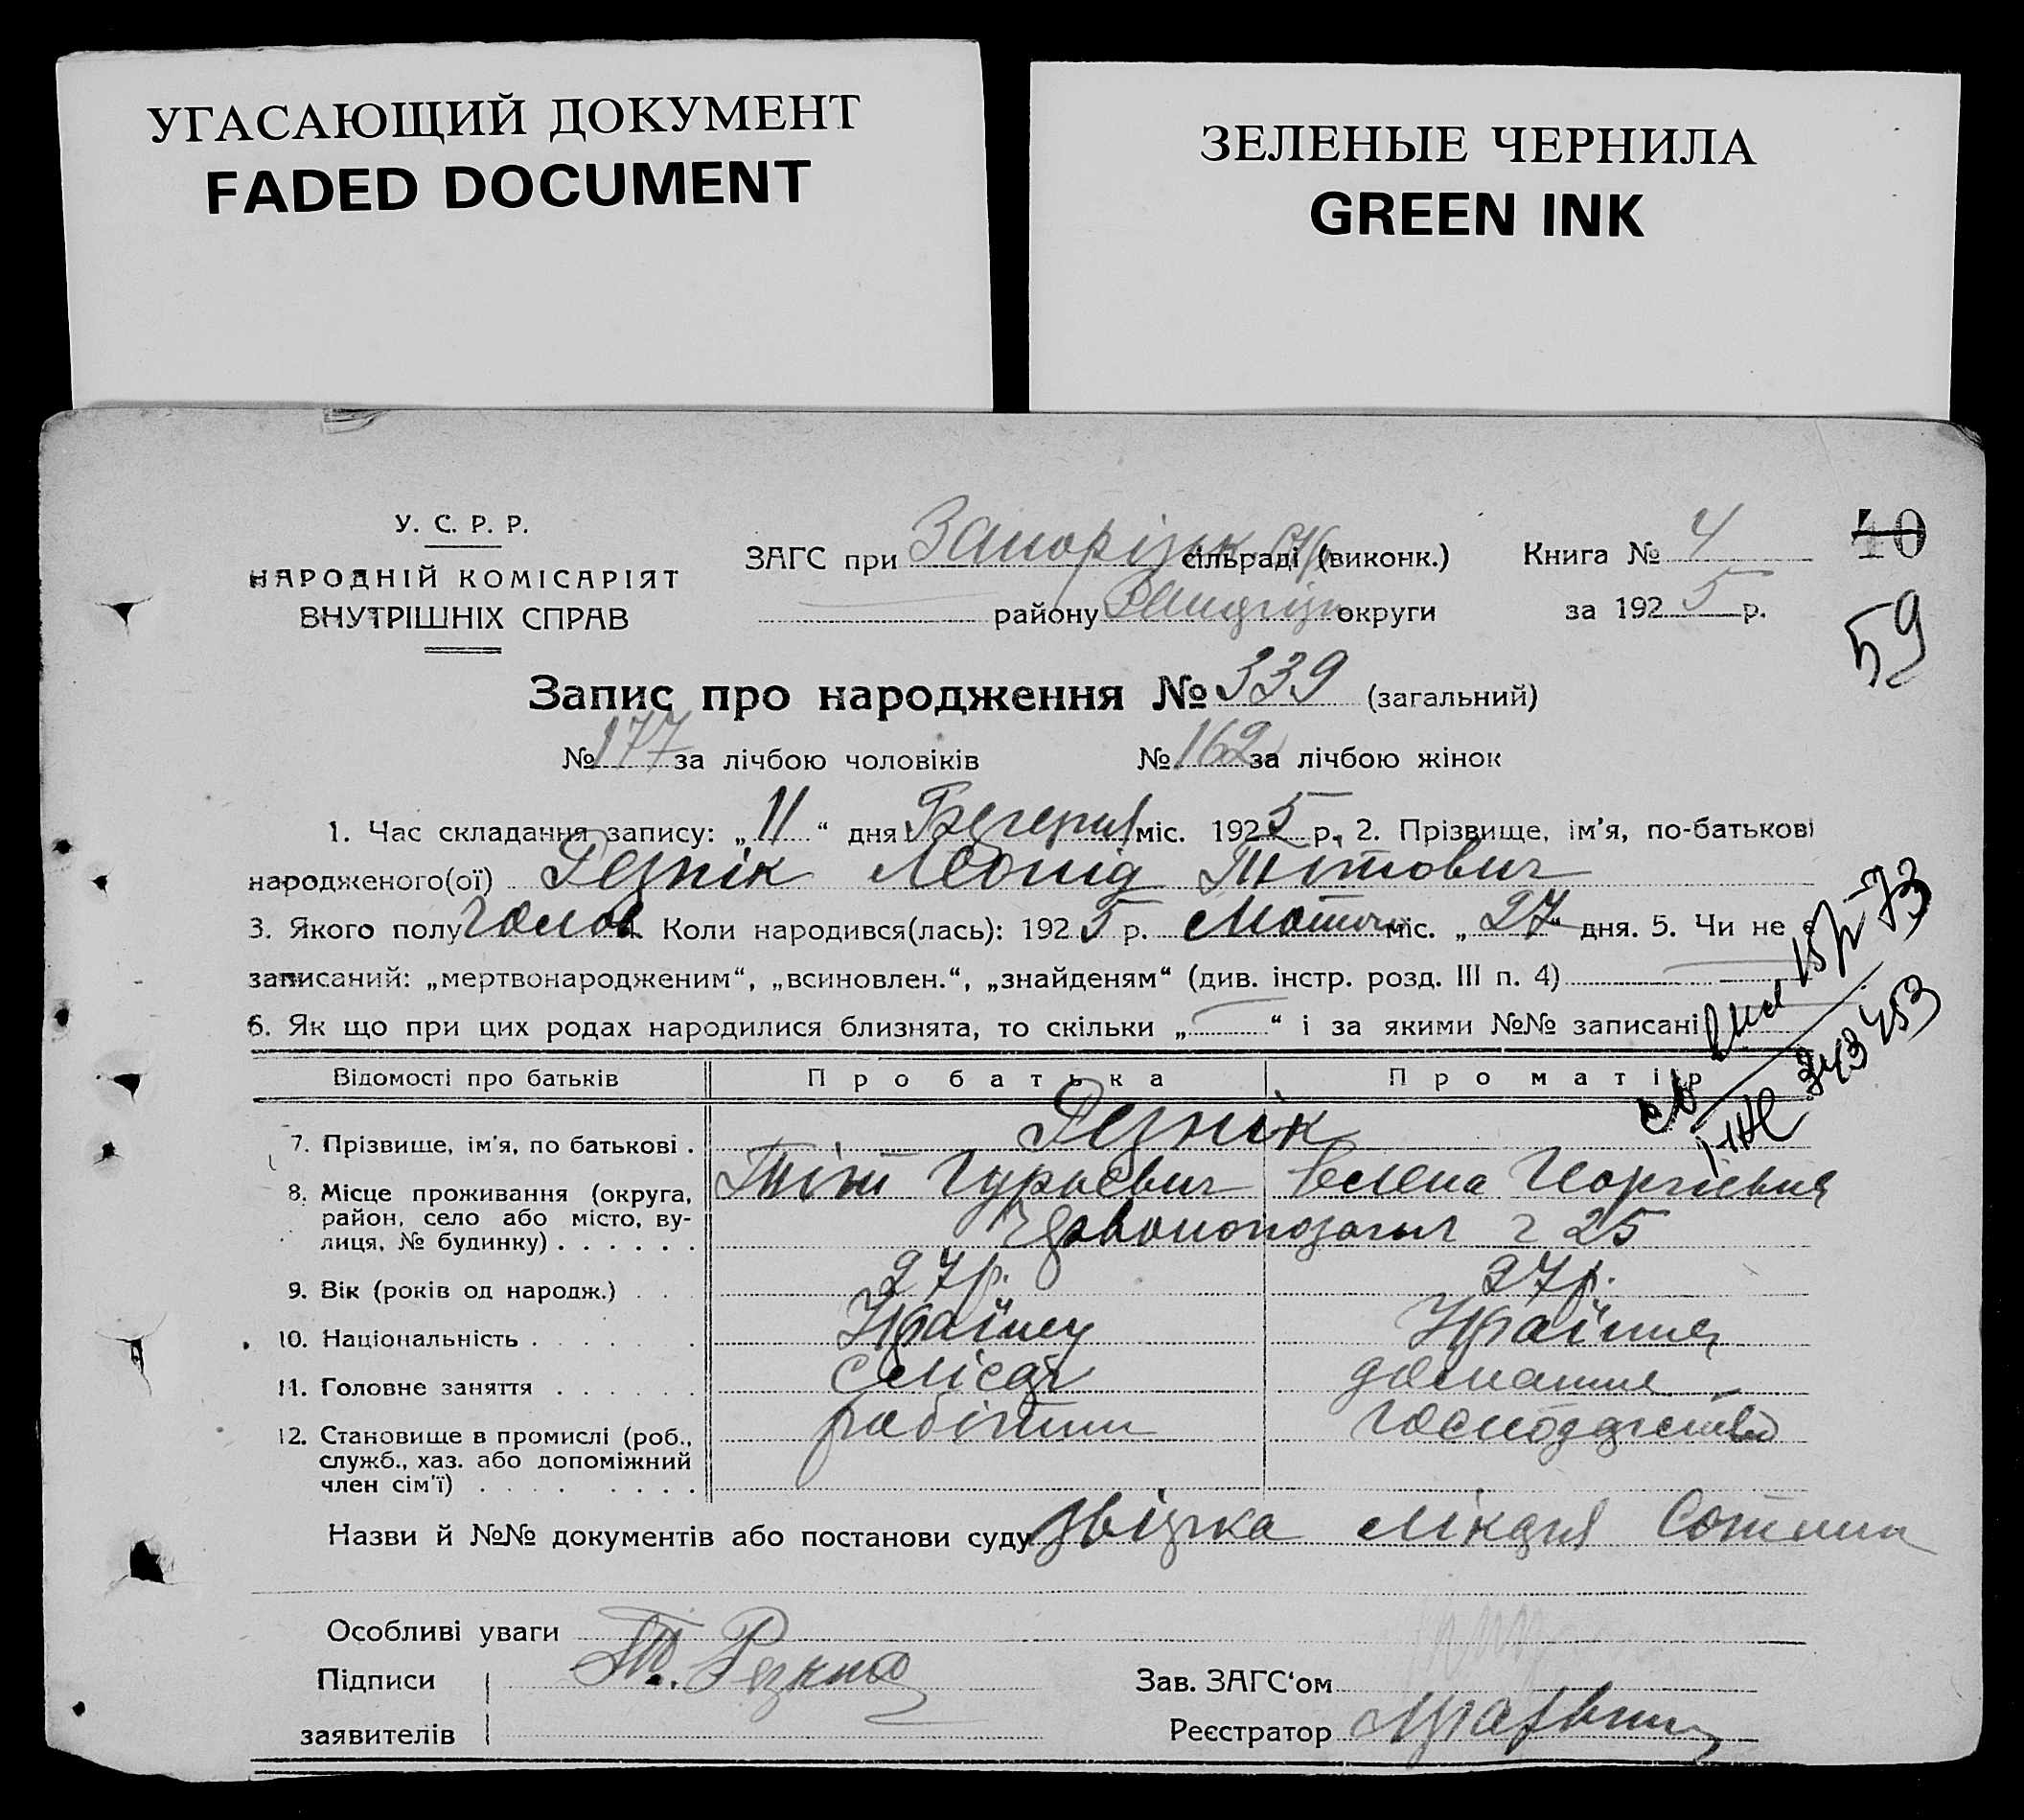 УГАСАЮЩИЙ ДОКУМЕНТ
FADED DOCUMENT
ЗЕЛЕНЫЕ ЧЕРНИЛА
GREEN INK
У. С. Р. Р.
НАРОДНІЙ КОМІСАРІЯТ
ВНУТРІШНІХ СПРАВ
ЗАГС при Запорізьк сільраді (виконк.)
району округи
Книга № 4
за 1925 р.
40
59
Запис про народження № 339 (загальний)
№ 177 за лічбою чоловіків № 162 за лічбою жінок
1. Час складання запису: „11“ дня міс. 1925 р. 2. Прізвище, ім'я, по-батькові
народженого(ої) Рєзнік Леонід Тітович
3. Якого полу чолов. 4. Коли народився(лась): 1925 р. міс. „27“ дня. 5. Чи не є
записаний: „мертвонародженим“, „всиновлен.“, „знайденям“ (див. інстр. розд. III п. 4)
6. Як що при цих родах народилися близнята, то скільки „ “ і за якими №№ записані
Відомості про батьків Про батька Про матір
7. Прізвище, ім'я, по батькові . Рєзнік
Тіт Гурьєвич Гелена Георгієвна
8. Місце проживання (округа,
район, село або місто, ву-
лиця, № будинку) . . . . . . 25
9. Вік (років од народж.) . . . 27 р. 27 р.
10. Національність . . . . . . Украінец Украінка
11. Головне заняття . . . . . . слісарь домашне
господарство
12. Становище в промислі (роб., робітник
служб., хаз. або допоміжний
член сім'ї) . . . . . . . .
Назви й №№ документів або постанови суду звістка лікаря
Особливі уваги
Підписи
заявителів
Т. Резник
Зав. ЗАГС'ом
Реєстратор
73
343453